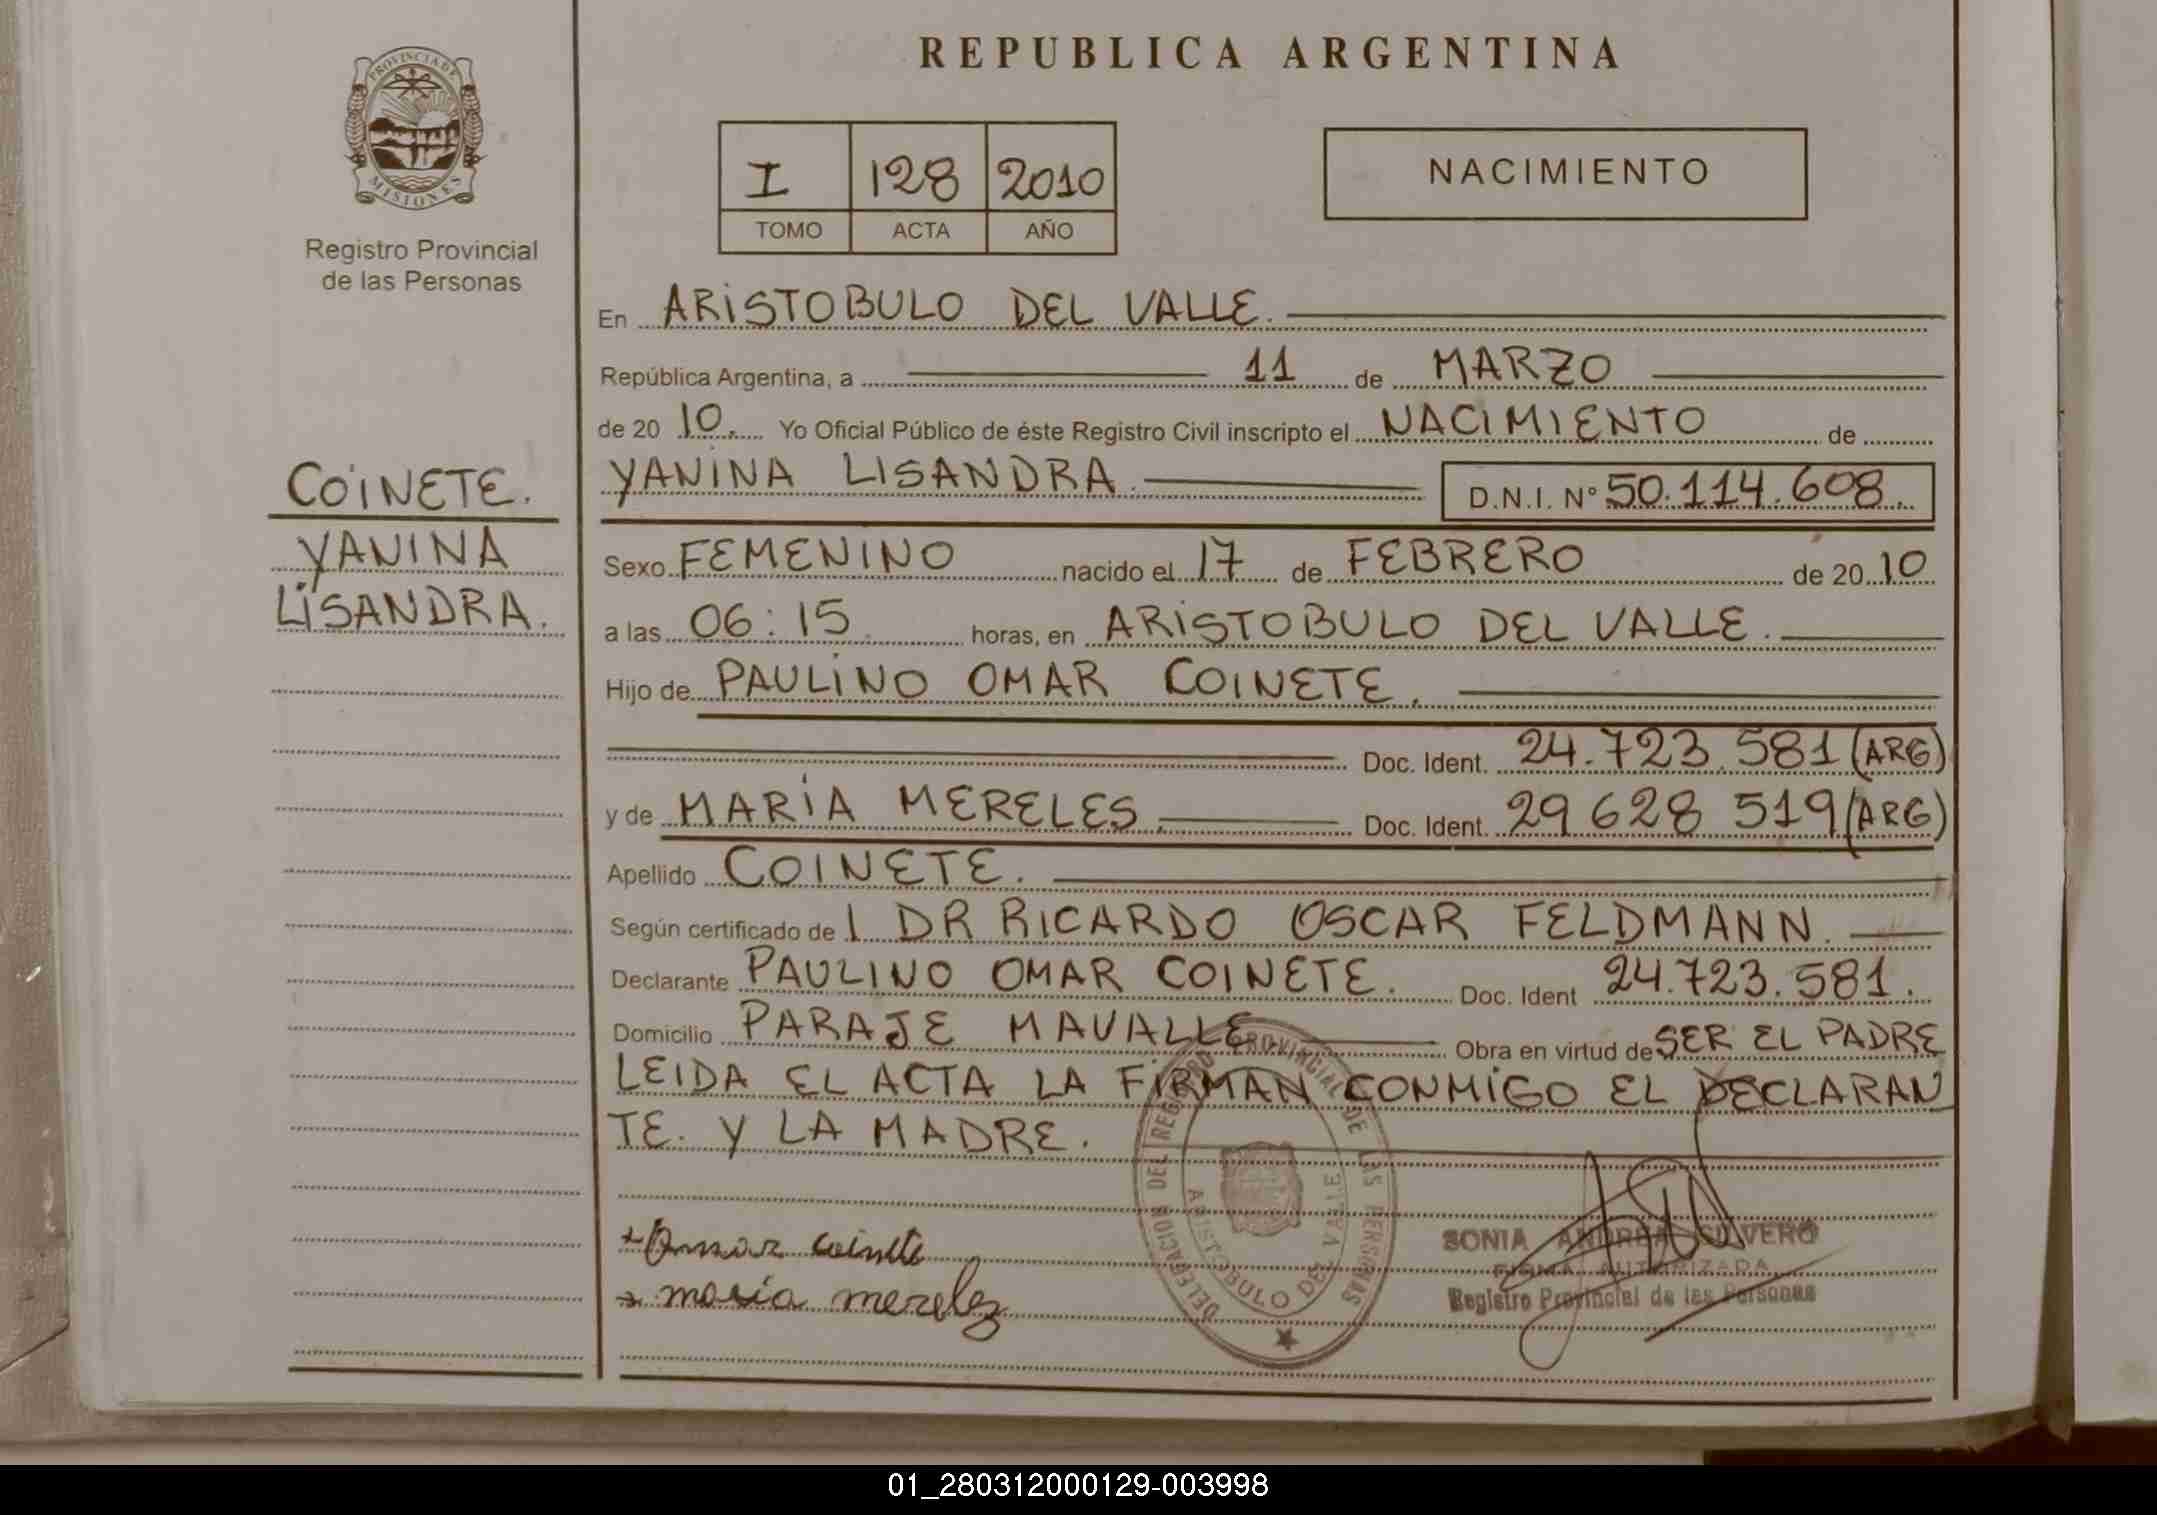 REPUBLICA ARGENTINA
PROVINCIA DE
MISIONES
Registro Provincial
de las Personas
I 128 2010
TOMO ACTA AÑO
NACIMIENTO
COINETE.
YANINA
LISANDRA.
En ARISTOBULO DEL VALLE.
República Argentina, a 11 de MARZO
de 2010. Yo Oficial Público de éste Registro Civil inscripto el NACIMIENTO de
YANINA LISANDRA. D.N.I. Nº 50.114.608.
Sexo FEMENINO nacido el 17 de FEBRERO de 2010
a las 06:15. horas, en ARISTOBULO DEL VALLE.
Hijo de PAULINO OMAR COINETE.
Doc. Ident. 24.723.581 (ARG)
y de MARIA MERELES. Doc. Ident. 29 628 519 (ARG)
Apellido COINETE.
Según certificado de L DR RICARDO OSCAR FELDMANN.
Declarante PAULINO OMAR COINETE. Doc. Ident 24.723.581.
Domicilio PARAJE MAVALLE Obra en virtud de SER EL PADRE
LEIDA EL ACTA LA FIRMAN CONMIGO EL DECLARAN
TE. Y LA MADRE.
DELEGACION DEL REGISTRO PROVINCIAL DE LAS PERSONAS
ARISTOBULO DEL VALLE
Omar coinete
maria merelez
SONIA ANDREA SILVERO
FIRMA AUTORIZADA
Registro Provincial de las Personas
01_280312000129-003998